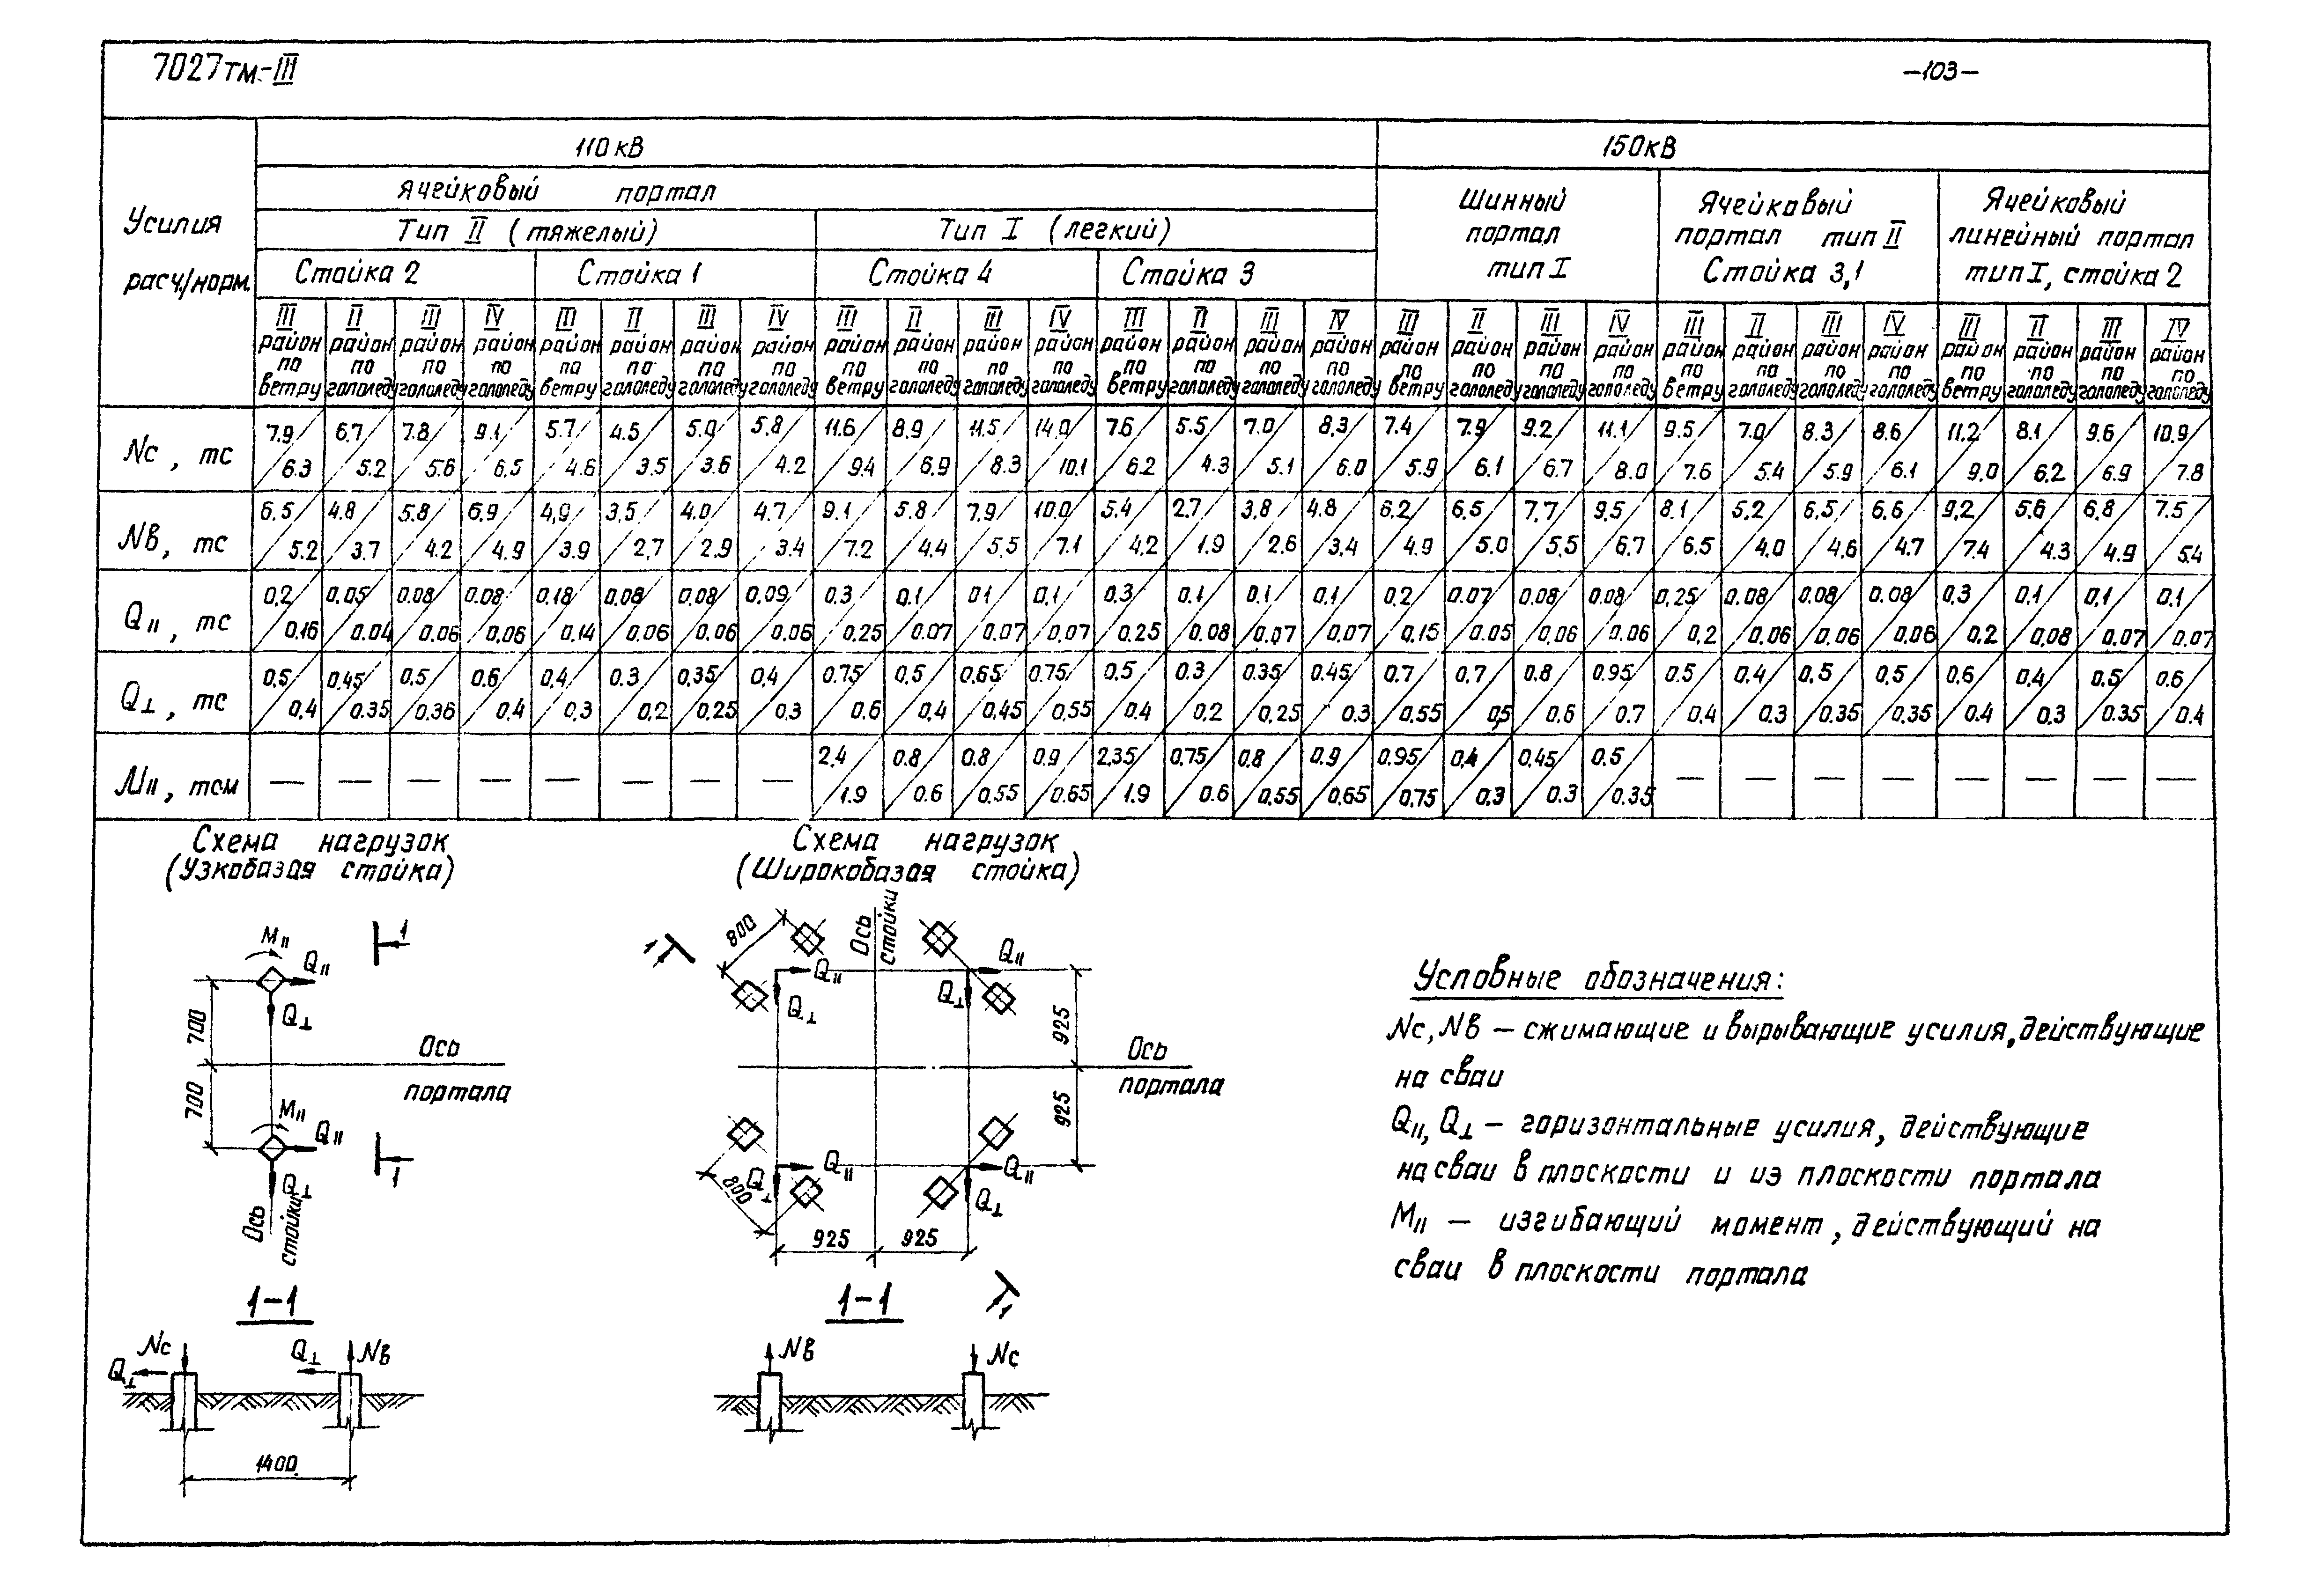 7027тм-III
-103-
Усилия расч/норм.
110 кВ
150кВ
Ячейковый портал
Шинный портал тип I
Ячейковый портал тип II Стойка 3,1
Ячейковый линейный портал тип I, стойка 2
Тип II (тяжелый)
Тип I (легкий)
Стойка 2
Стойка 1
Стойка 4
Стойка 3
III район по ветру
II район по гололеду
III район по гололеду
IV район по гололеду
III район по ветру
II район по гололеду
III район по гололеду
IV район по гололеду
III район по ветру
II район по гололеду
III район по гололеду
IV район по гололеду
III район по ветру
II район по гололеду
III район по гололеду
IV район по гололеду
III район по ветру
II район по гололеду
III район по гололеду
IV район по гололеду
III район по ветру
II район по гололеду
III район по гололеду
IV район по гололеду
III район по ветру
II район по гололеду
III район по гололеду
IV район по гололеду
Nс, тс 7.9/6.3 6.7/5.2 7.8/5.6 9.1/6.5 5.7/4.6 4.5/3.5 5.0/3.6 5.8/4.2 11.6/9.4 8.9/6.9 11.5/8.3 14.0/10.1 7.6/6.2 5.5/4.3 7.0/5.1 8.3/6.0 7.4/5.9 7.9/6.1 9.2/6.7 11.1/8.0 9.5/7.6 7.0/5.4 8.3/5.9 8.6/6.1 11.2/9.0 8.1/6.2 9.6/6.9 10.9/7.8
Nв, тс 6.5/5.2 4.8/3.7 5.8/4.2 6.9/4.9 4.9/3.9 3.5/2.7 4.0/2.9 4.7/3.4 9.1/7.2 5.8/4.4 7.9/5.5 10.0/7.1 5.4/4.2 2.7/1.9 3.8/2.6 4.8/3.4 6.2/4.9 6.5/5.0 7.7/5.5 9.5/6.7 8.1/6.5 5.2/4.0 6.5/4.6 6.6/4.7 9.2/7.4 5.6/4.3 6.8/4.9 7.5/5.4
Q||, тс 0.2/0.16 0.05/0.04 0.08/0.06 0.08/0.06 0.18/0.14 0.08/0.06 0.08/0.06 0.09/0.06 0.3/0.25 0.1/0.07 0.1/0.07 0.1/0.07 0.3/0.25 0.1/0.08 0.1/0.07 0.1/0.07 0.2/0.15 0.07/0.05 0.08/0.06 0.08/0.06 0.25/0.2 0.08/0.06 0.08/0.06 0.08/0.06 0.3/0.2 0.1/0.08 0.1/0.07 0.1/0.07
Q⊥, тс 0.5/0.4 0.45/0.35 0.5/0.36 0.6/0.4 0.4/0.3 0.3/0.2 0.35/0.25 0.4/0.3 0.75/0.6 0.5/0.4 0.65/0.45 0.75/0.55 0.5/0.4 0.3/0.2 0.35/0.25 0.45/0.3 0.7/0.55 0.7/0.5 0.8/0.6 0.95/0.7 0.5/0.4 0.4/0.3 0.5/0.35 0.5/0.35 0.6/0.4 0.4/0.3 0.5/0.35 0.6/0.4
M||, тсм — — — — — — — — 2.4/1.9 0.8/0.6 0.8/0.55 0.9/0.65 2.35/1.9 0.75/0.6 0.8/0.55 0.9/0.65 0.95/0.75 0.4/0.3 0.45/0.3 0.5/0.35 — — — — — — — —
Схема нагрузок
(Узкобазая стойка)
M||
Q||
Q⊥
1
700
700
Ось
портала
M||
Q||
Q⊥
1
Ось стойки
1-1
Nс
Q⊥
Q⊥
Nв
1400
Схема нагрузок
(Широкобазая стойка)
Ось стойки
1
800
Q||
Q⊥
Q||
Q⊥
925
925
Ось
портала
800
Q||
Q⊥
Q||
Q⊥
925
925
1
1-1
Nв
Nс
Условные обозначения:
Nс, Nв — сжимающие и вырывающие усилия, действующие
на сваи
Q||, Q⊥ — горизонтальные усилия, действующие
на сваи в плоскости и из плоскости портала
M|| — изгибающий момент, действующий на
сваи в плоскости портала